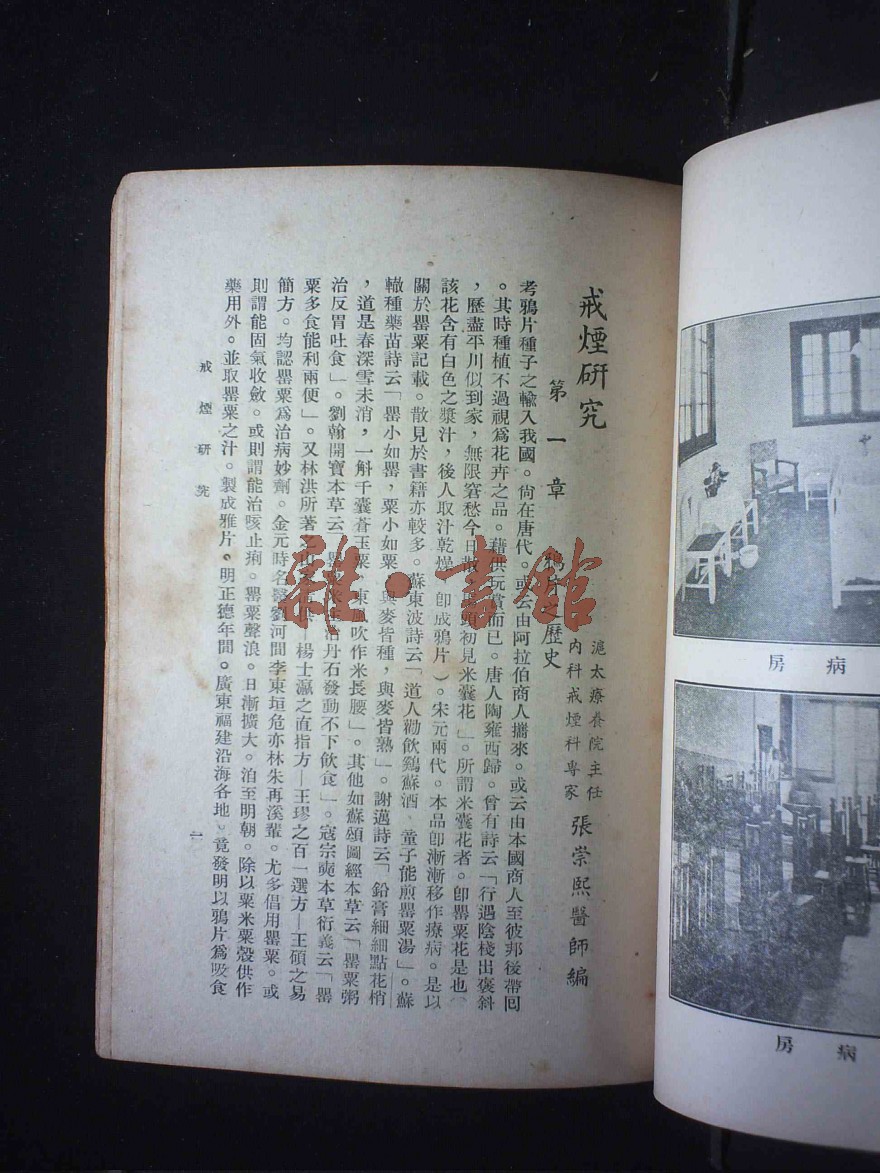 戒煙研究
第一章 鴉片之歷史
滬太療養院主任
內科戒煙科專家
張崇熙醫師編
考鴉片種子之輸入我國。尙在唐代。或云由阿拉伯商人攜來。或云由本國商人至彼邦後帶回
。其時種植不過視爲花卉之品。藉供玩賞而已。唐人陶雍西歸。曾有詩云「行過陰棧出褒斜
，歷盡平川似到家，無限窘愁今日散，頭初見米囊花」。所謂米囊花者。卽罌粟花是也（
該花含有白色之漿汁，後人取汁乾燥，卽成鴉片）。宋元兩代。本品卽漸漸移作療病。是以
關於罌粟記載。散見於書籍亦較多。蘇東波詩云「道人勸飲鷄蘇酒，童子能煎罌粟湯」。蘇
轍種藥苗詩云「罌小如罌，粟小如粟，與麥皆種，與麥皆熟」。謝邁詩云「鉛膏細細點花梢
，道是春深雪未消，一斛千囊蒼玉粟，東風吹作米長腰」。其他如蘇頌圖經本草云「罌粟粥
治反胃吐食」。劉翰開寶本草云「罌粟米主治丹石發動不下飲食」。寇宗奭本草衍義云「罌
粟多食能利兩便」。又林洪所著之山家淸供—楊士瀛之直指方—王璆之百一選方—王碩之易
簡方。均認罌粟爲治病妙劑。金元時名醫劉河間李東垣危亦林朱再溪輩。尤多倡用罌粟。或
則謂能固氣收斂。或則謂能治咳止痢。罌粟聲浪。日漸擴大。洎至明朝。除以粟米粟殼供作
藥用外。並取罌粟之汁。製成雅片。明正德年間。廣東福建沿海各地。竟發明以鴉片爲吸食
戒煙研究
一
病房
病房
雜·書館